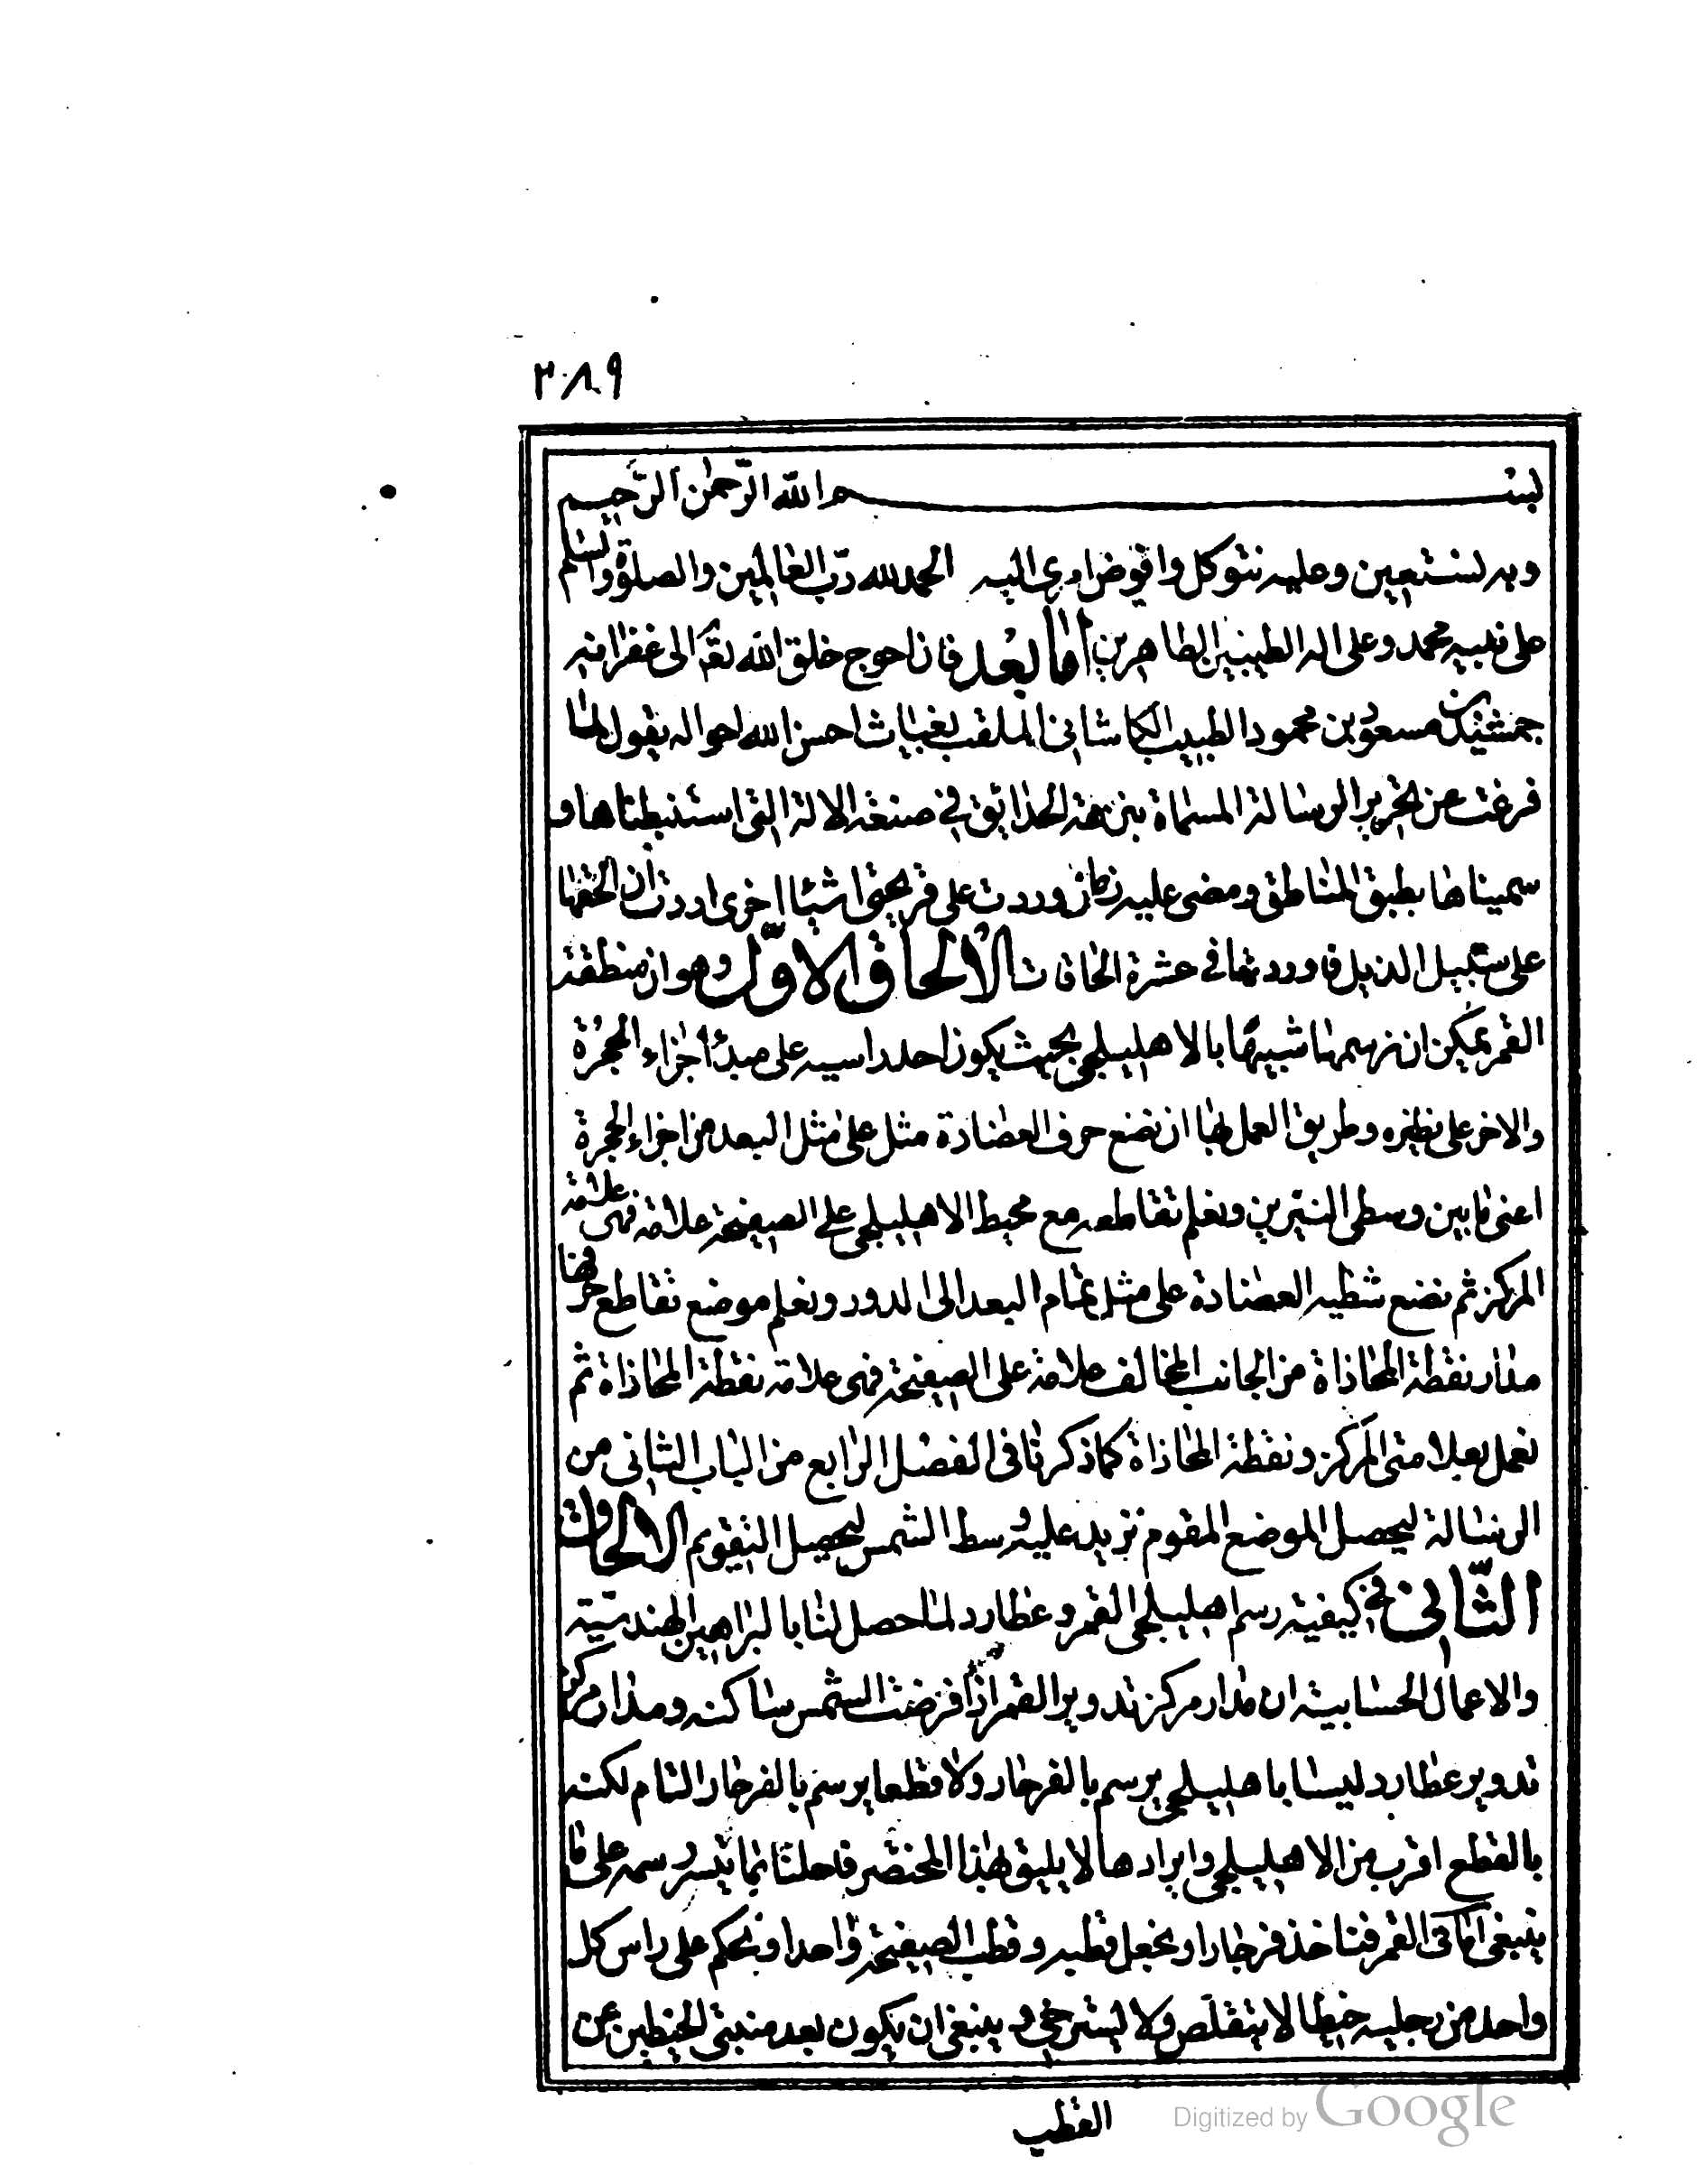 ٢٨٩
بسم الله الرحمن الرحيم
وبه نستعين وعليه نتوكل وافوض امرى اليه الحمد لله رب العالمين والصلوة والسلم
على نبيه محمد وعلى اله الطيبين الطاهرين اما بعد فان احوج خلق الله تعالى الى غفرانه
جمشيد بن مسعود بن محمود الطبيب الكاشانى الملقب بغياث احسن الله احواله يقول لما
فرغت من تحرير الرسالة المسماة بنزهة الحدائق فى صنعة الالة التى استنبطناها و
سميناها بطبق المناطق ومضى عليه زمان وردت على قريحتى اشيا اخرى اردت ان الحقها
على سبيل الذيل فاوردتها فى عشرة الحاقات الالحاق الاول وهو ان منطقة
القمر يمكن ان نرسمها شبيها بالاهليلجى بحيث يكون احد راسيه على مبدء اجزاء الحجرة
والاخر على نظيره وطريق العمل بها ان نضع حرف العضادة مثل على مثل البعد من اجزاء الحجرة
اعنى ما بين وسطى النيرين ونعلم تقاطعه مع محيط الاهليلجى على الصفيحة علامة فهى علامة
المركز ثم نضع شظية العضادة على مثل تمام البعد الى الدور ونعلم موضع تقاطع حرفها
مدار نقطة المحاذاة من الجانب المخالف علامة على الصفيحة فهى علامة نقطة المحاذاة ثم
نعمل بعلامتى المركز ونقطة المحاذاة كما ذكرنا فى الفصل الرابع من الباب الثانى من
الرسالة ليحصل الموضع المقوم نزيد عليه وسط الشمس ليحصل التقويم الالحاق
الثانى فى كيفية رسم اهليلجى القمر وعطارد لما حصل لنا بالبراهين الهندسية
والاعمال الحسابية ان مدار مركز تدوير القمر اذا فرضت الشمس ساكنه ومدار مركز
تدوير عطارد ليسا باهليلجى يرسم بالفرجار ولا قطعا يرسم بالفرجار التام لكنه
بالقطع اقرب من الاهليلجى وايرادها لا يليق بهذا المختصر فاحلنا بما تيسر رسمه على ما
ينبغى اما فى القمر فناخذ فرجارا ونجعل قطبه وقطب الصفيحة واحدا ونحكم على راس كل
واحد من رجليه خيطا لا يتقلص ولا يسترخى وينبغى ان يكون بعد منبتى الخيطين عن
القطب
Digitized by Google